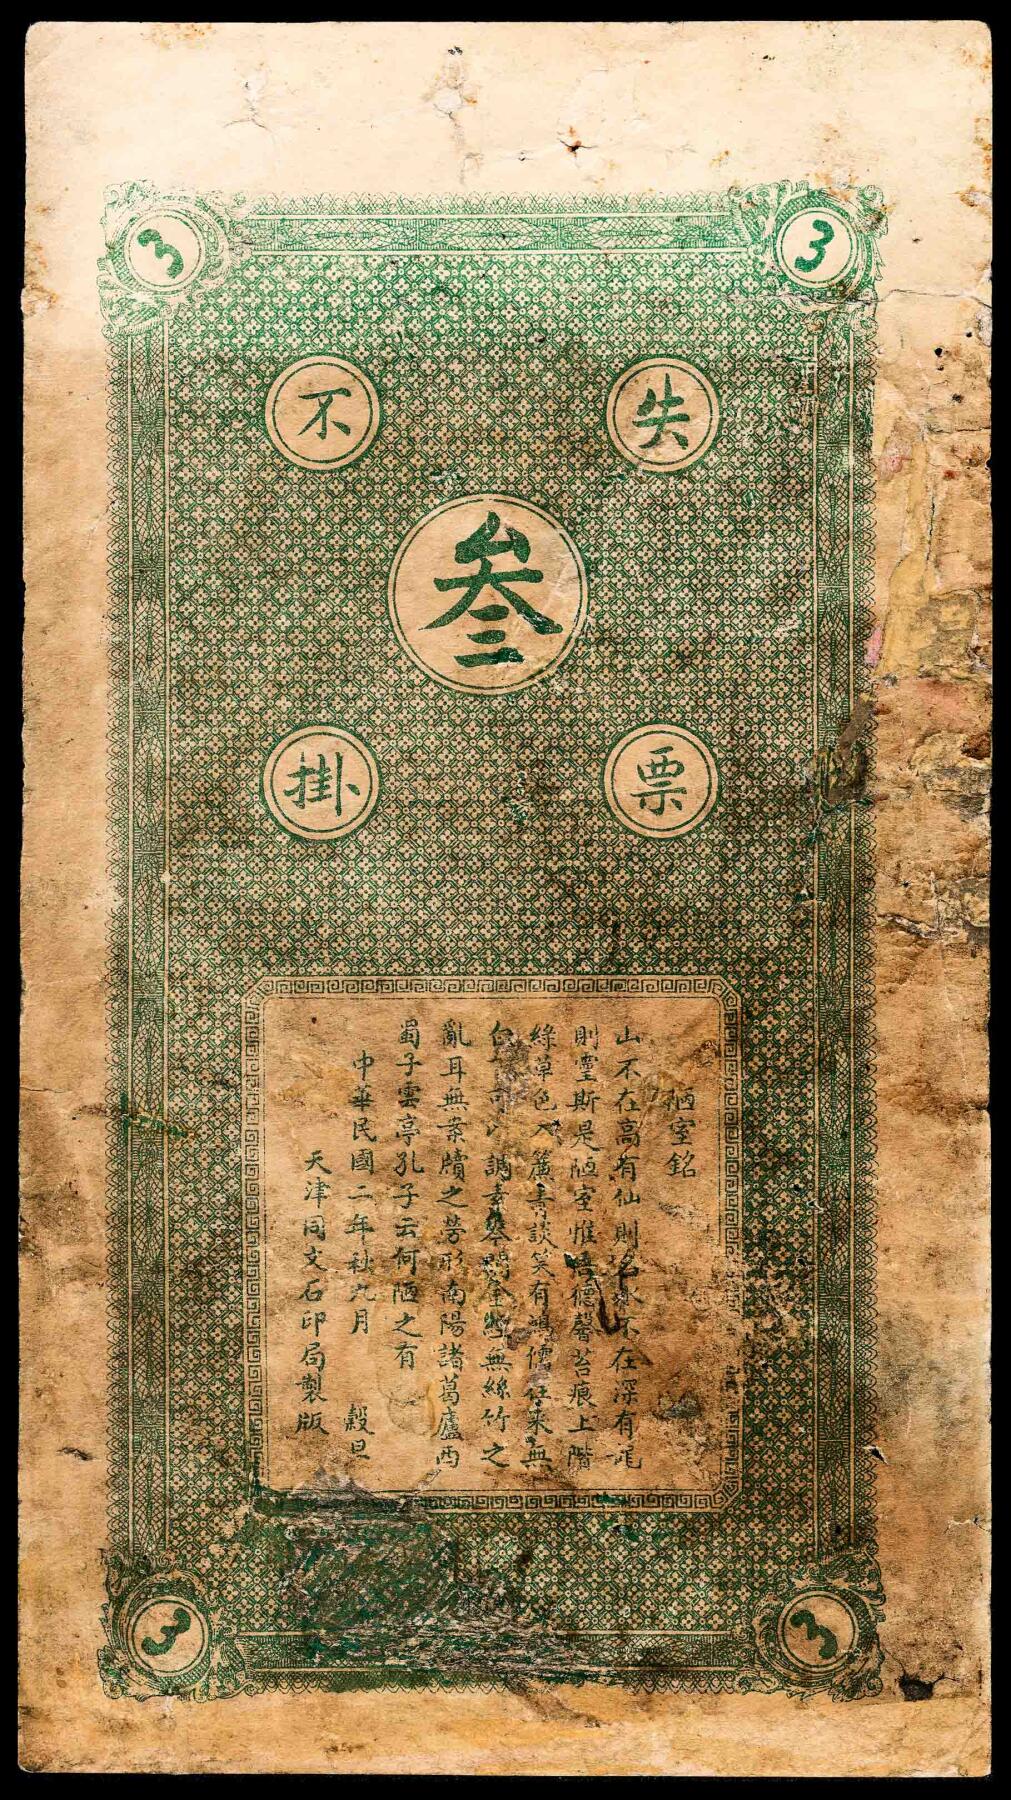 3 3
失票
叁
不掛
陋室銘
山不在高有仙則名水不在深有
則靈斯是陋室惟吾德馨苔痕上階
綠草色入簾青談笑有鴻儒往來無
白可以調素琴閱金經無絲竹之
亂耳無案牘之勞形南陽諸葛廬西
蜀子雲亭孔子云何陋之有
中華民國二年秋九月 穀旦
天津同文石印局製版
3 3